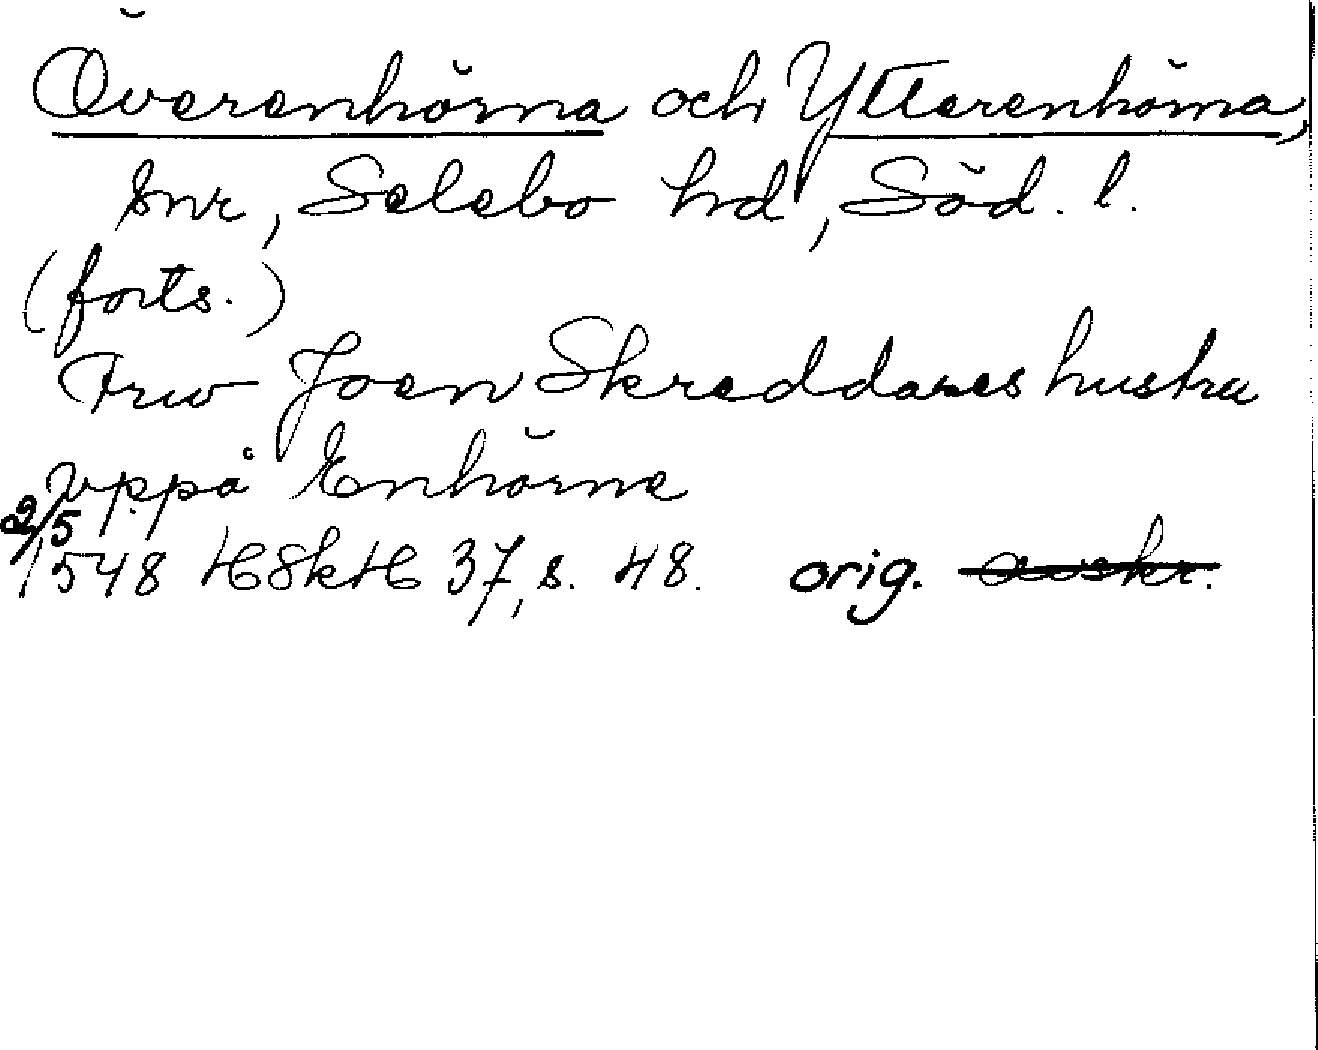 Överenhörna och Ytterenhörna,
snr, Selebo hd, Söd. l.
(forts.)
Frw Joen Skreddares hustru
vppå Enhörne
2/5
1548 HSkH 37, s. 48. orig. avskr.